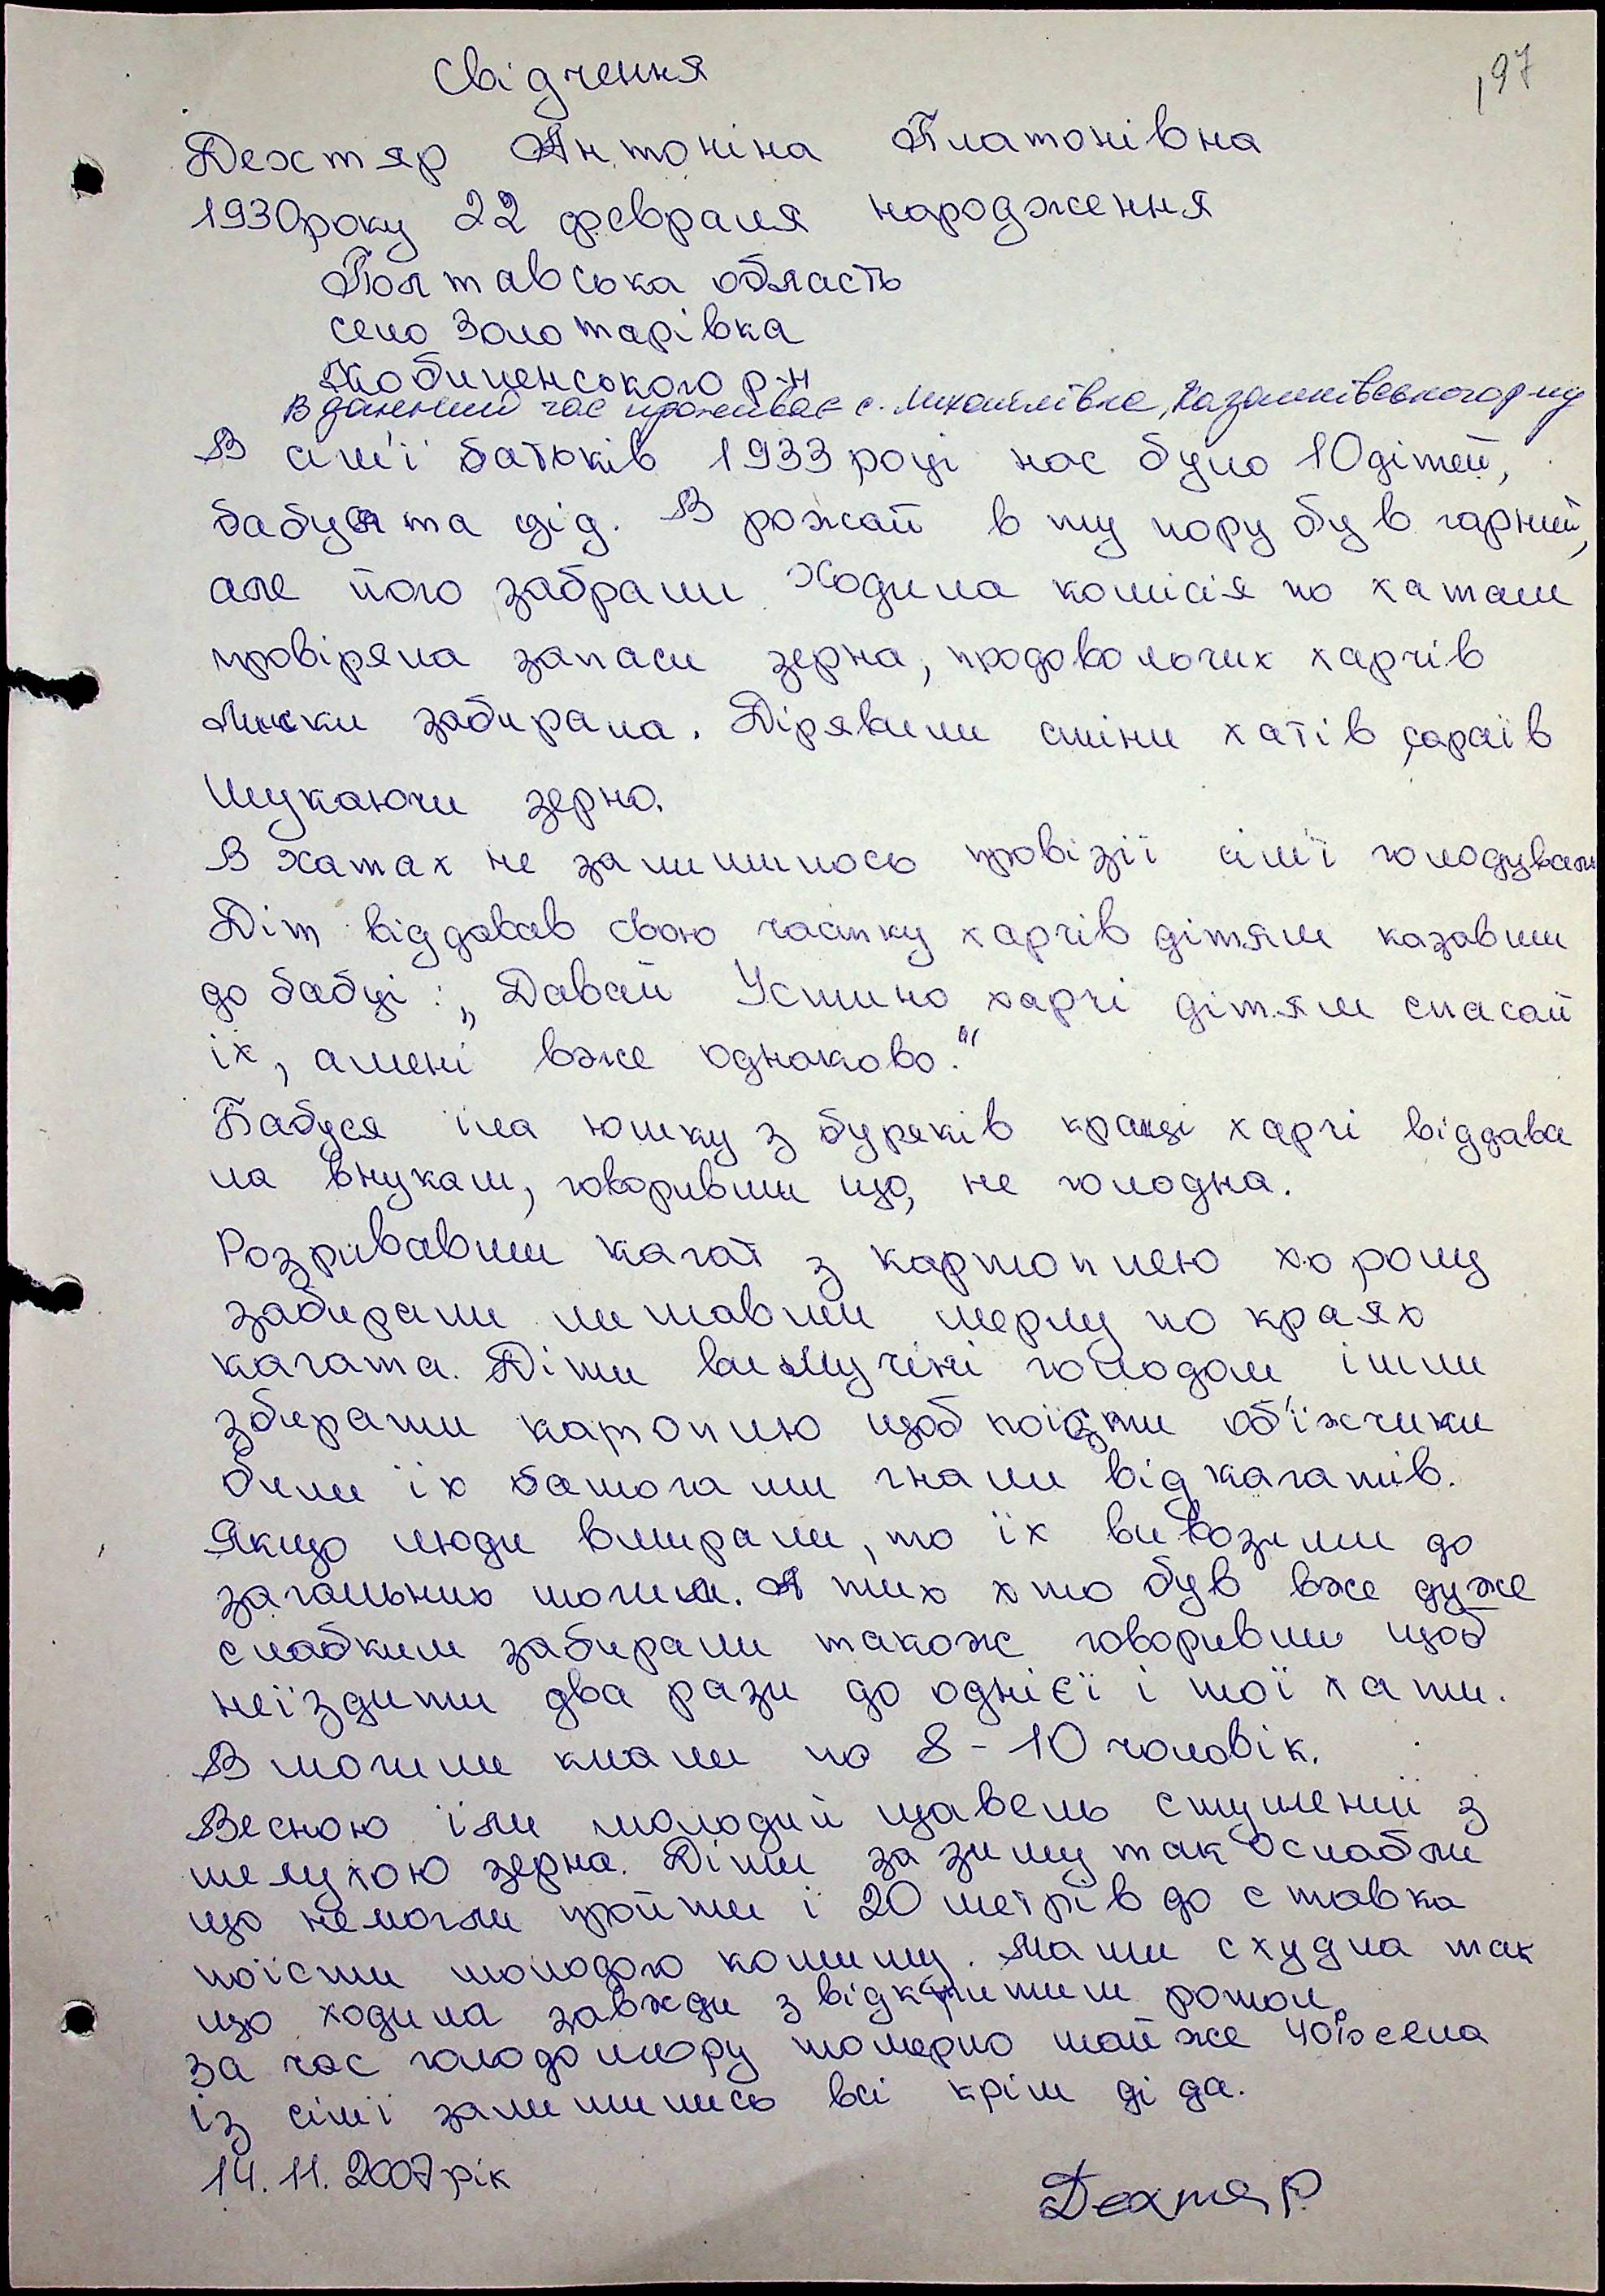 197
Свідчення
Дехтяр Антоніна Платонівна
1930року 22 февраля народження
Полтавська область
село Золотарівка
р-н
В данний час проживає с. Михайлівка, Казанківського р-ну
В сім'ї батьків 1933 році нас було 10дітей,
бабуся та дід. В рожай в ту пору був гарний,
але його забрали Ходила комісія по хатам
провіряла запаси зерна, продовольчих харчів
лишки забирала. Дірявили стіни хатів, сараїв
шукаючи зерно.
В хатах не залишилось провізії сім'ї голодували
Діт віддавав свою частку харчів дітям казавши
до бабці: „Давай Устино харчі дітям спасай
їх, амені вже однаково."
Бабуся їла юшку з буряків кращі харчі віддава
ла внукам, говоривши що, не голодна.
Розривавши кагат з картоплею хорошу
забирали лишавши мерзлу по краях
кагата. Діти вимучені голодом ішли
збирати картоплю щоб поїсти об'їжчики
били їх батогами гнали від кагатів.
Якщо люди вмирали, то їх вивозили до
загальних могил. А тих хто був вже дуже
слабким забирали також говоривши щоб
неїздити два рази до однієї і тої хати.
В могили клали по 8-10 чоловік.
Весною їли молодий щавель стушений з
шелухою зерна. Діти за зиму так ослабли
що немогли пройти і 20 метрів до ставка
поїсти молодого комишу. Мати схудла так
що ходила завжди з відкритим ротом.
За час голодомору померло майже 40% села
із сімї залишились всі крім діда.
14.11.2007рік
Дехтяр